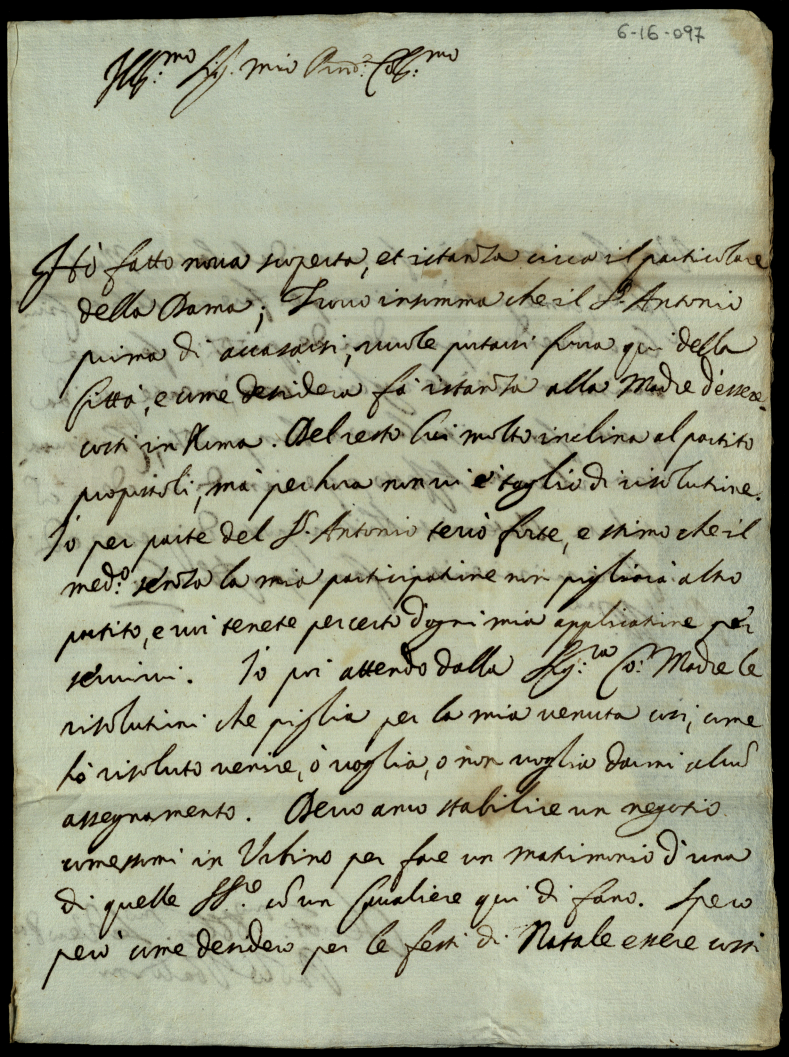 6-16-097
Ill:mo Sig:r mio Pron: Coll:mo
Hò fatto nova scoperta, et istanza circa il particolare
della Dama; Trovo insomma che il S.r Antonio
prima di accasarsi, vuole portarsi fora qui della
Città, e come desidera fà istanza alla Madre d'essere
costi in Roma. Del resto lui molto inclina al partito
propostoli, mà per hora non vi è taglio di risolutione.
Io per parte del S.r Antonio terrò forte, e stimo che il
med:o senza la mia participatione non pigliarà altro
partito, e voi tenete per certo d'ogni mia applicatione per
servirvi. Io poi attendo dalla Sig:ra Co: Madre le
risolutioni che piglia per la mia venuta costi, come
hò risoluto venire, ò voglia, o non voglia darmi alcun
assegnamento. Devo anco stabilire un negotio
comessomi in Urbino per fare un matrimonio d'una
di quelle SS.re con un Cavaliere qui di fano. Spero
però come desidero per le feste di Natale essere costi